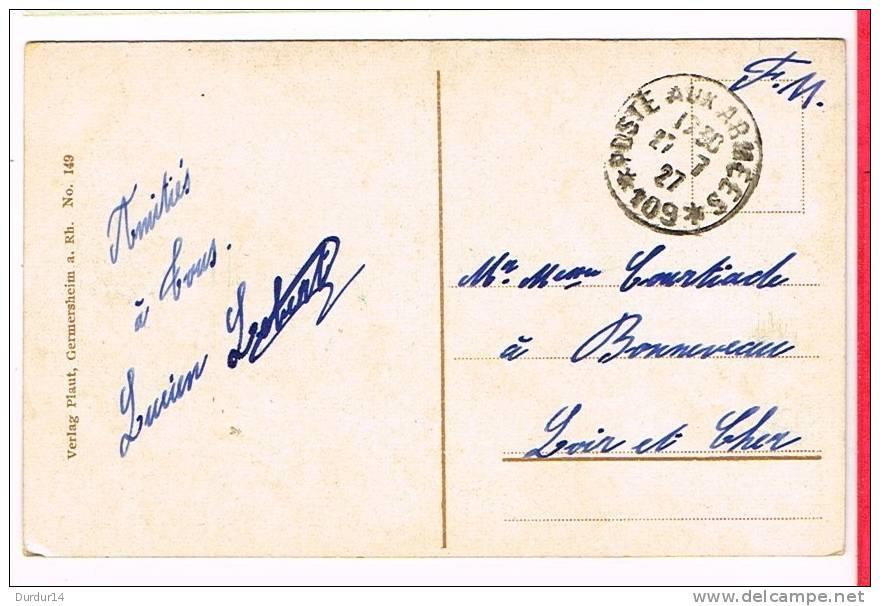 Verlag Plaut, Germersheim a. Rh. No. 149
Amitiés
à tous.
Lucien
F.M.
*POSTE AUX ARMÉES*
27 7
27
*109*
Mr. Meme Courtiade
à Bonneveau
Loir et Cher
Durdur14
www.delcampe.net